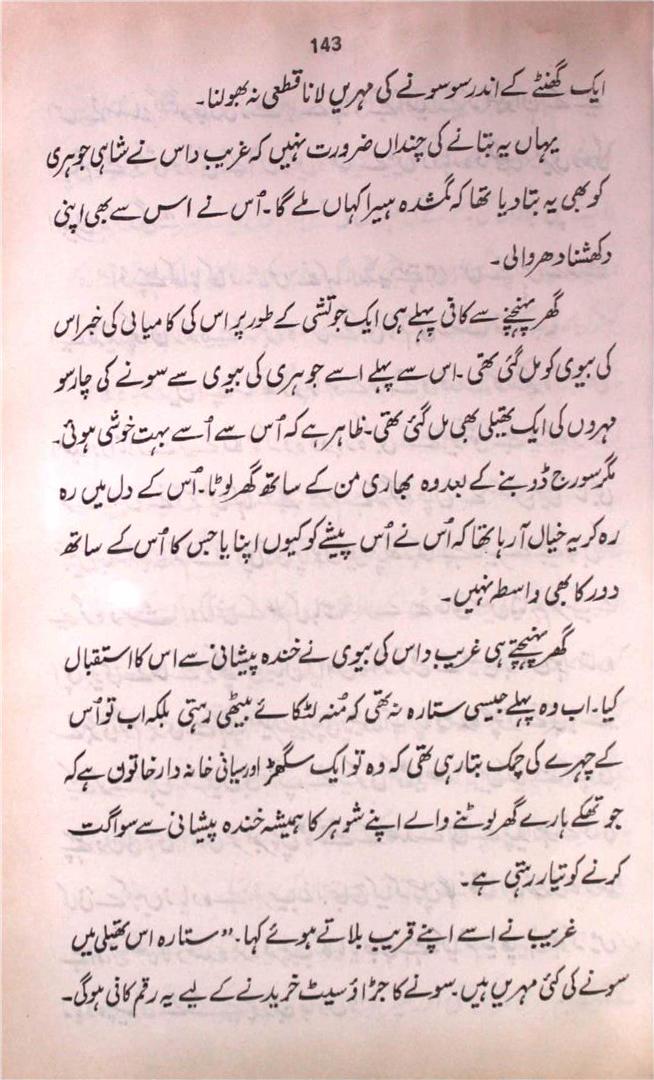 143
ایک گھنٹے کے اندر سو سونے کی مہریں لانا قطعی نہ بھولنا۔
یہاں یہ بتانے کی چنداں ضرورت نہیں کہ غریب داس نے شاہی جوہری
کو بھی یہ بتا دیا تھا کہ گمشدہ ہیرا کہاں ملے گا۔ اُس نے اس سے بھی اپنی
دکھشنا دھروالی۔
گھر پہنچنے سے کافی پہلے ہی ایک جوتشی کے طور پر اس کی کامیابی کی خبر اس
کی بیوی کو مل گئی تھی۔ اس سے پہلے اسے جوہری کی بیوی سے سونے کی چار سو
مہروں کی ایک تھیلی بھی مل گئی تھی۔ ظاہر ہے کہ اُس سے اُسے بہت خوشی ہوئی۔
مگر سورج ڈوبنے کے بعد وہ بھاری من کے ساتھ گھر لوٹا۔ اُس کے دل میں رہ
رہ کر یہ خیال آ رہا تھا کہ اُس نے اُس پیشے کو کیوں اپنایا جس کا اُس کے ساتھ
دور کا بھی واسطہ نہیں۔
گھر پہنچتے ہی غریب داس کی بیوی نے خندہ پیشانی سے اس کا استقبال
کیا۔ اب وہ پہلے جیسی ستارہ نہ تھی کہ مُنہ لٹکائے بیٹھی رہتی بلکہ اب تو اُس
کے چہرے کی چمک بتا رہی تھی کہ وہ تو ایک سگھڑ اور سیانی خانہ دار خاتون ہے کہ
جو تھکے ہارے گھر لوٹنے والے اپنے شوہر کا ہمیشہ خندہ پیشانی سے سواگت
کرنے کو تیار رہتی ہے۔
غریب نے اسے اپنے قریب بلاتے ہوئے کہا۔ "ستارہ اس تھیلی میں
سونے کی کئی مہریں ہیں۔ سونے کا جڑاؤ سیٹ خریدنے کے لیے یہ رقم کافی ہوگی۔